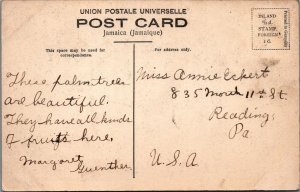 UNION POSTALE UNIVERSELLE
POST CARD
Jamaica (Jamaique)
This space may be used for
correspondence.
For address only.
INLAND
½d.
STAMP.
FOREIGN
1d.
These palm trees
are beautiful.
They have all kinds
of fruits here.
Margaret
Guenther
Miss Annie Eckert
835 North 11th St.
Reading,
Pa
U.S.A